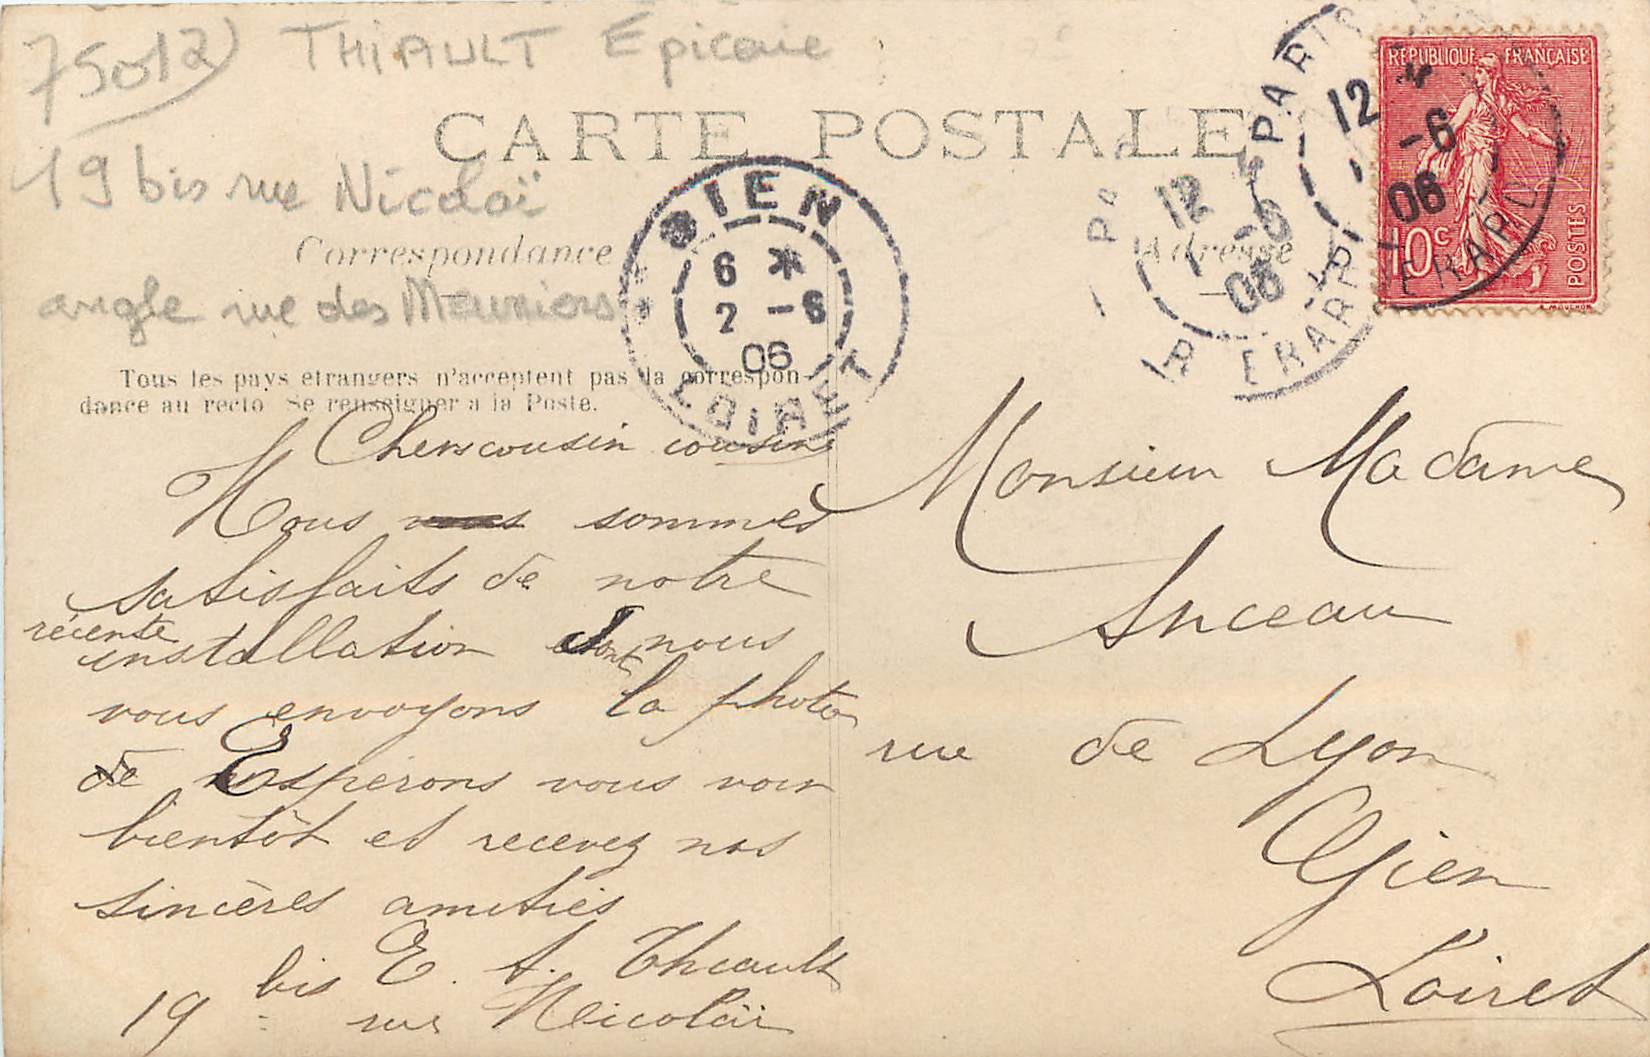 75012) THIAULT Epicerie
CARTE POSTALE
19 bis rue Nicolaï
Correspondance
angle rue des Meuniers
Tous les pays etrangers n'acceptent pas la correspon-
dance au recto Se renseigner a la Poste.
GIEN
6 *
2 -6
06
LOIRET
Adresse
PARIS
12 *
1 -6
06
R. ERARD
12
1 -6
06
R ERARD
REPUBLIQUE FRANÇAISE
10c
POSTES
Chers cousin cousine
Nous sommes
satisfaits de notre
récente
installation dont nous
vous envoyons la photo
Esperons vous voir
bientôt et recevez nos
sincères amitiés
E. A. Thiault
19 bis rue Nicolaï
Monsieur Madame
Anceau
rue de Lyon
Gien
Loiret